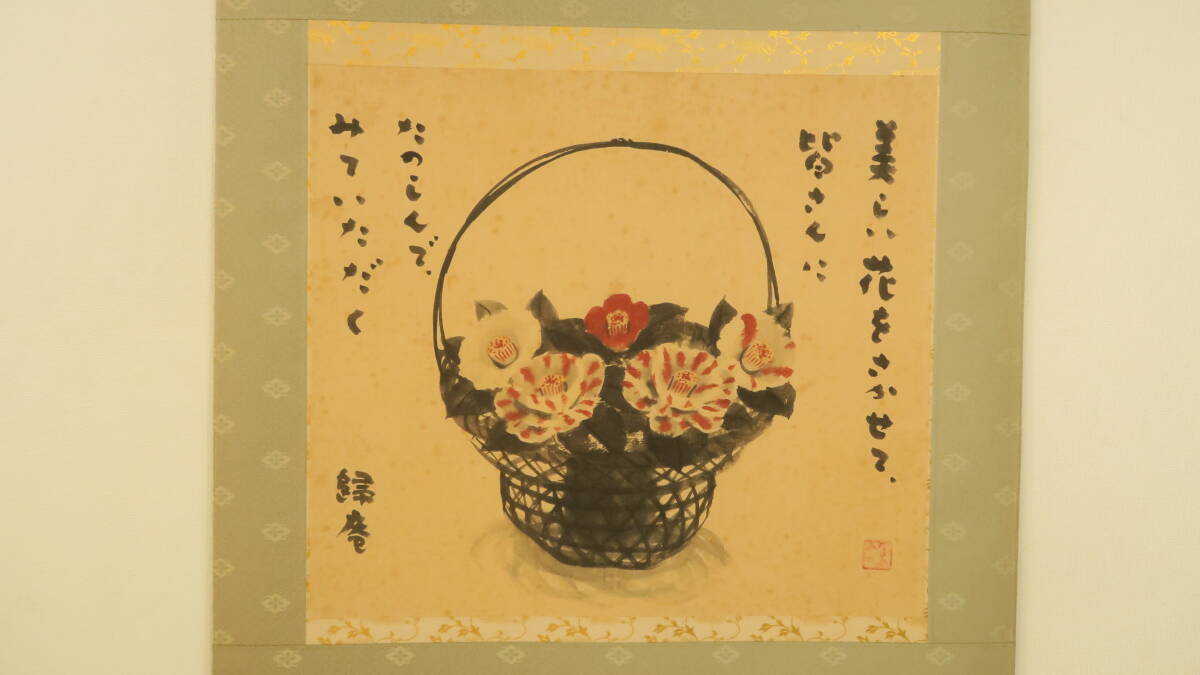 美しい花をさかせて、
皆さんに
たのしんで、
みていただく
歸庵